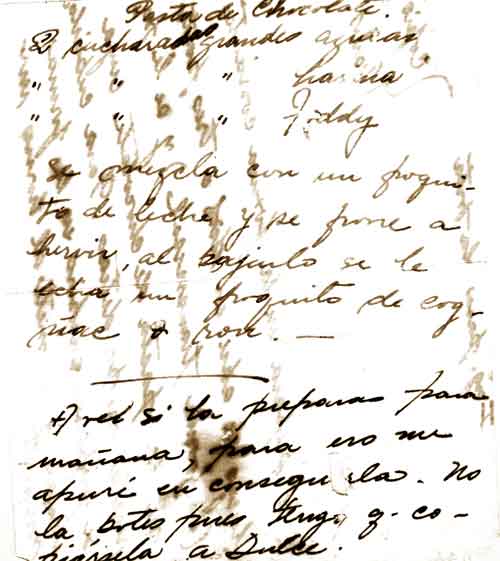 Pasta de Chocolate.
2 cucharadas grandes azucar
" " " harina
" " " Toddy
se mezcla con un poqui-
to de leche y se pone a
hervir, al bajarlo se le
echa un poquito de cog-
ñac o ron. —
A ver si la preparas para
mañana, para eso me
apuré en conseguirla. No
la botes pues tengo q. co-
piársela a Dulce.